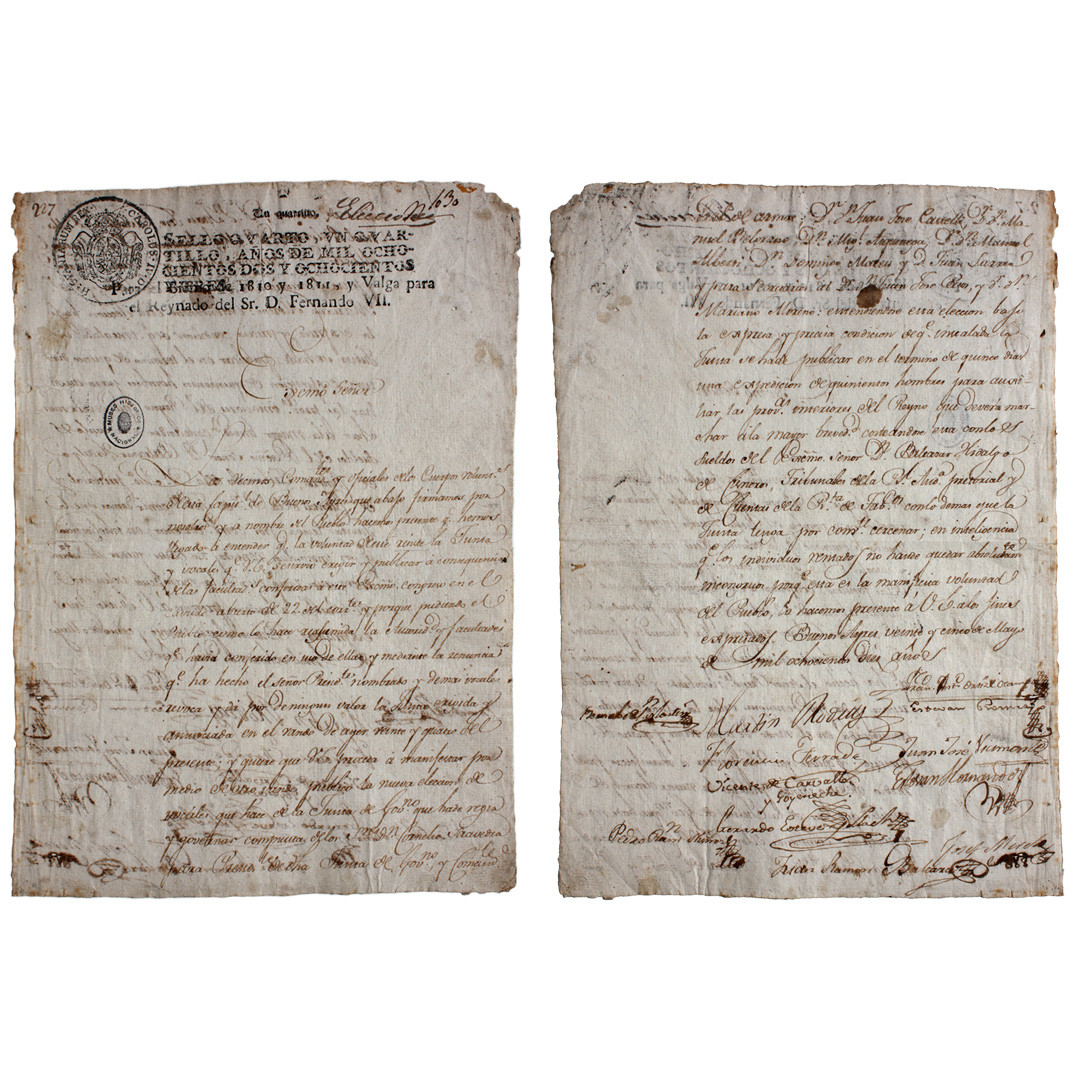 227
Un quartillo.
Eleccion
1630
CAROLUS IV D
SELLO QUARTO, UN QUAR-
TILLO, AÑOS DE MIL OCHO-
CIENTOS DOS Y OCHOCIENTOS
TRES.
Para el de 1810 y 1811, y Valga para
el Reynado del Sr. D. Fernando VII.
Exmô Señor
MUSEO HISTORICO NACIONAL
Los vecinos, Comand.tes y oficiales de los Cuerpos volunt.s
de esta Capit.l de Buenos Ayres que abajo firmamos por
nosotros y a nombre del Pueblo hacemos presente q.e hemos
llegado a entender q.e la voluntad de este la Junta
y vocales q.e V.E. se sirvió erigir y publicar a consequencia
de las facultad.s conferidas a este Exmô. en el
Cabildo abierto de 22 del corr.te y porque pudiendo el
Pueblo como lo hace reasumida la Autorid.d y facultades
q.e havia conferido, en uso de ellas, y mediante la renuncia
q.e ha hecho el Señor Presid.te nombrado y demas vocales
revoca y da por de ningun valor la Junta erigida y
anunciada en el vando de ayer veinte y quatro del
presente; y quiere que V.E. proceda a manifestar por
medio de otro vando publico la nueva eleccion de
vocales que hace de la Junta de Gov.no que ha de regir
y governar compuesta de los S.res D.n Cornelio Saavedra
para Presid.te de dha Junta de Gov.no y Comand.te
Gral de armas; D.r D.n Juan José Castelli, D.r D.n Ma-
nuel Belgrano, D.n Mig.l Azquenaga, D.r D.n Manuel
Alberti, D.n Domingo Mateu y D. Juan Larrea
y para Secretarios al D.r D.n Juan José Paso, y D.r D.n
Mariano Moreno: entendiendose esta eleccion bajo
la expresa y precisa condicion de q.e instalada la
Junta se ha de publicar en el termino de quince dias
una expedicion de quinientos hombres para auxi-
liar las prov.as interiores del Reyno, la qual devera mar-
char a la mayor breved.d costeandose esta con los
sueldos del Exmô. Señor D.n Baltasar Hidalgo
de Cisneros, Tribunales de la R.l Aud.a pretorial y
de Cuentas, de la R.ta de Tab.os con lo demas que la
Junta tenga por conv.te cercenar; en inteligencia
q.e los individuos rentados no han de quedar absolutam.te
incongruos porq.e esta es la manifiesta voluntad
del Pueblo, lo hacemos presente á V.E. a los fines
expresados. Buenos Ayres veinte y cinco de Mayo
de mil ochocientos Diez años
Fran.co Ant.o Ortiz de Ocampo
Martin Rodriguez
Estevan Romero
Florencio Terrada
Juan José Viamonte
Vicente de Carvallo
y Goyeneche
Estevan Hernandez
Gerardo Esteve y Llach
Pedro Ramon Nuñez
Josef Merelo
Juan Ramon Balcarce